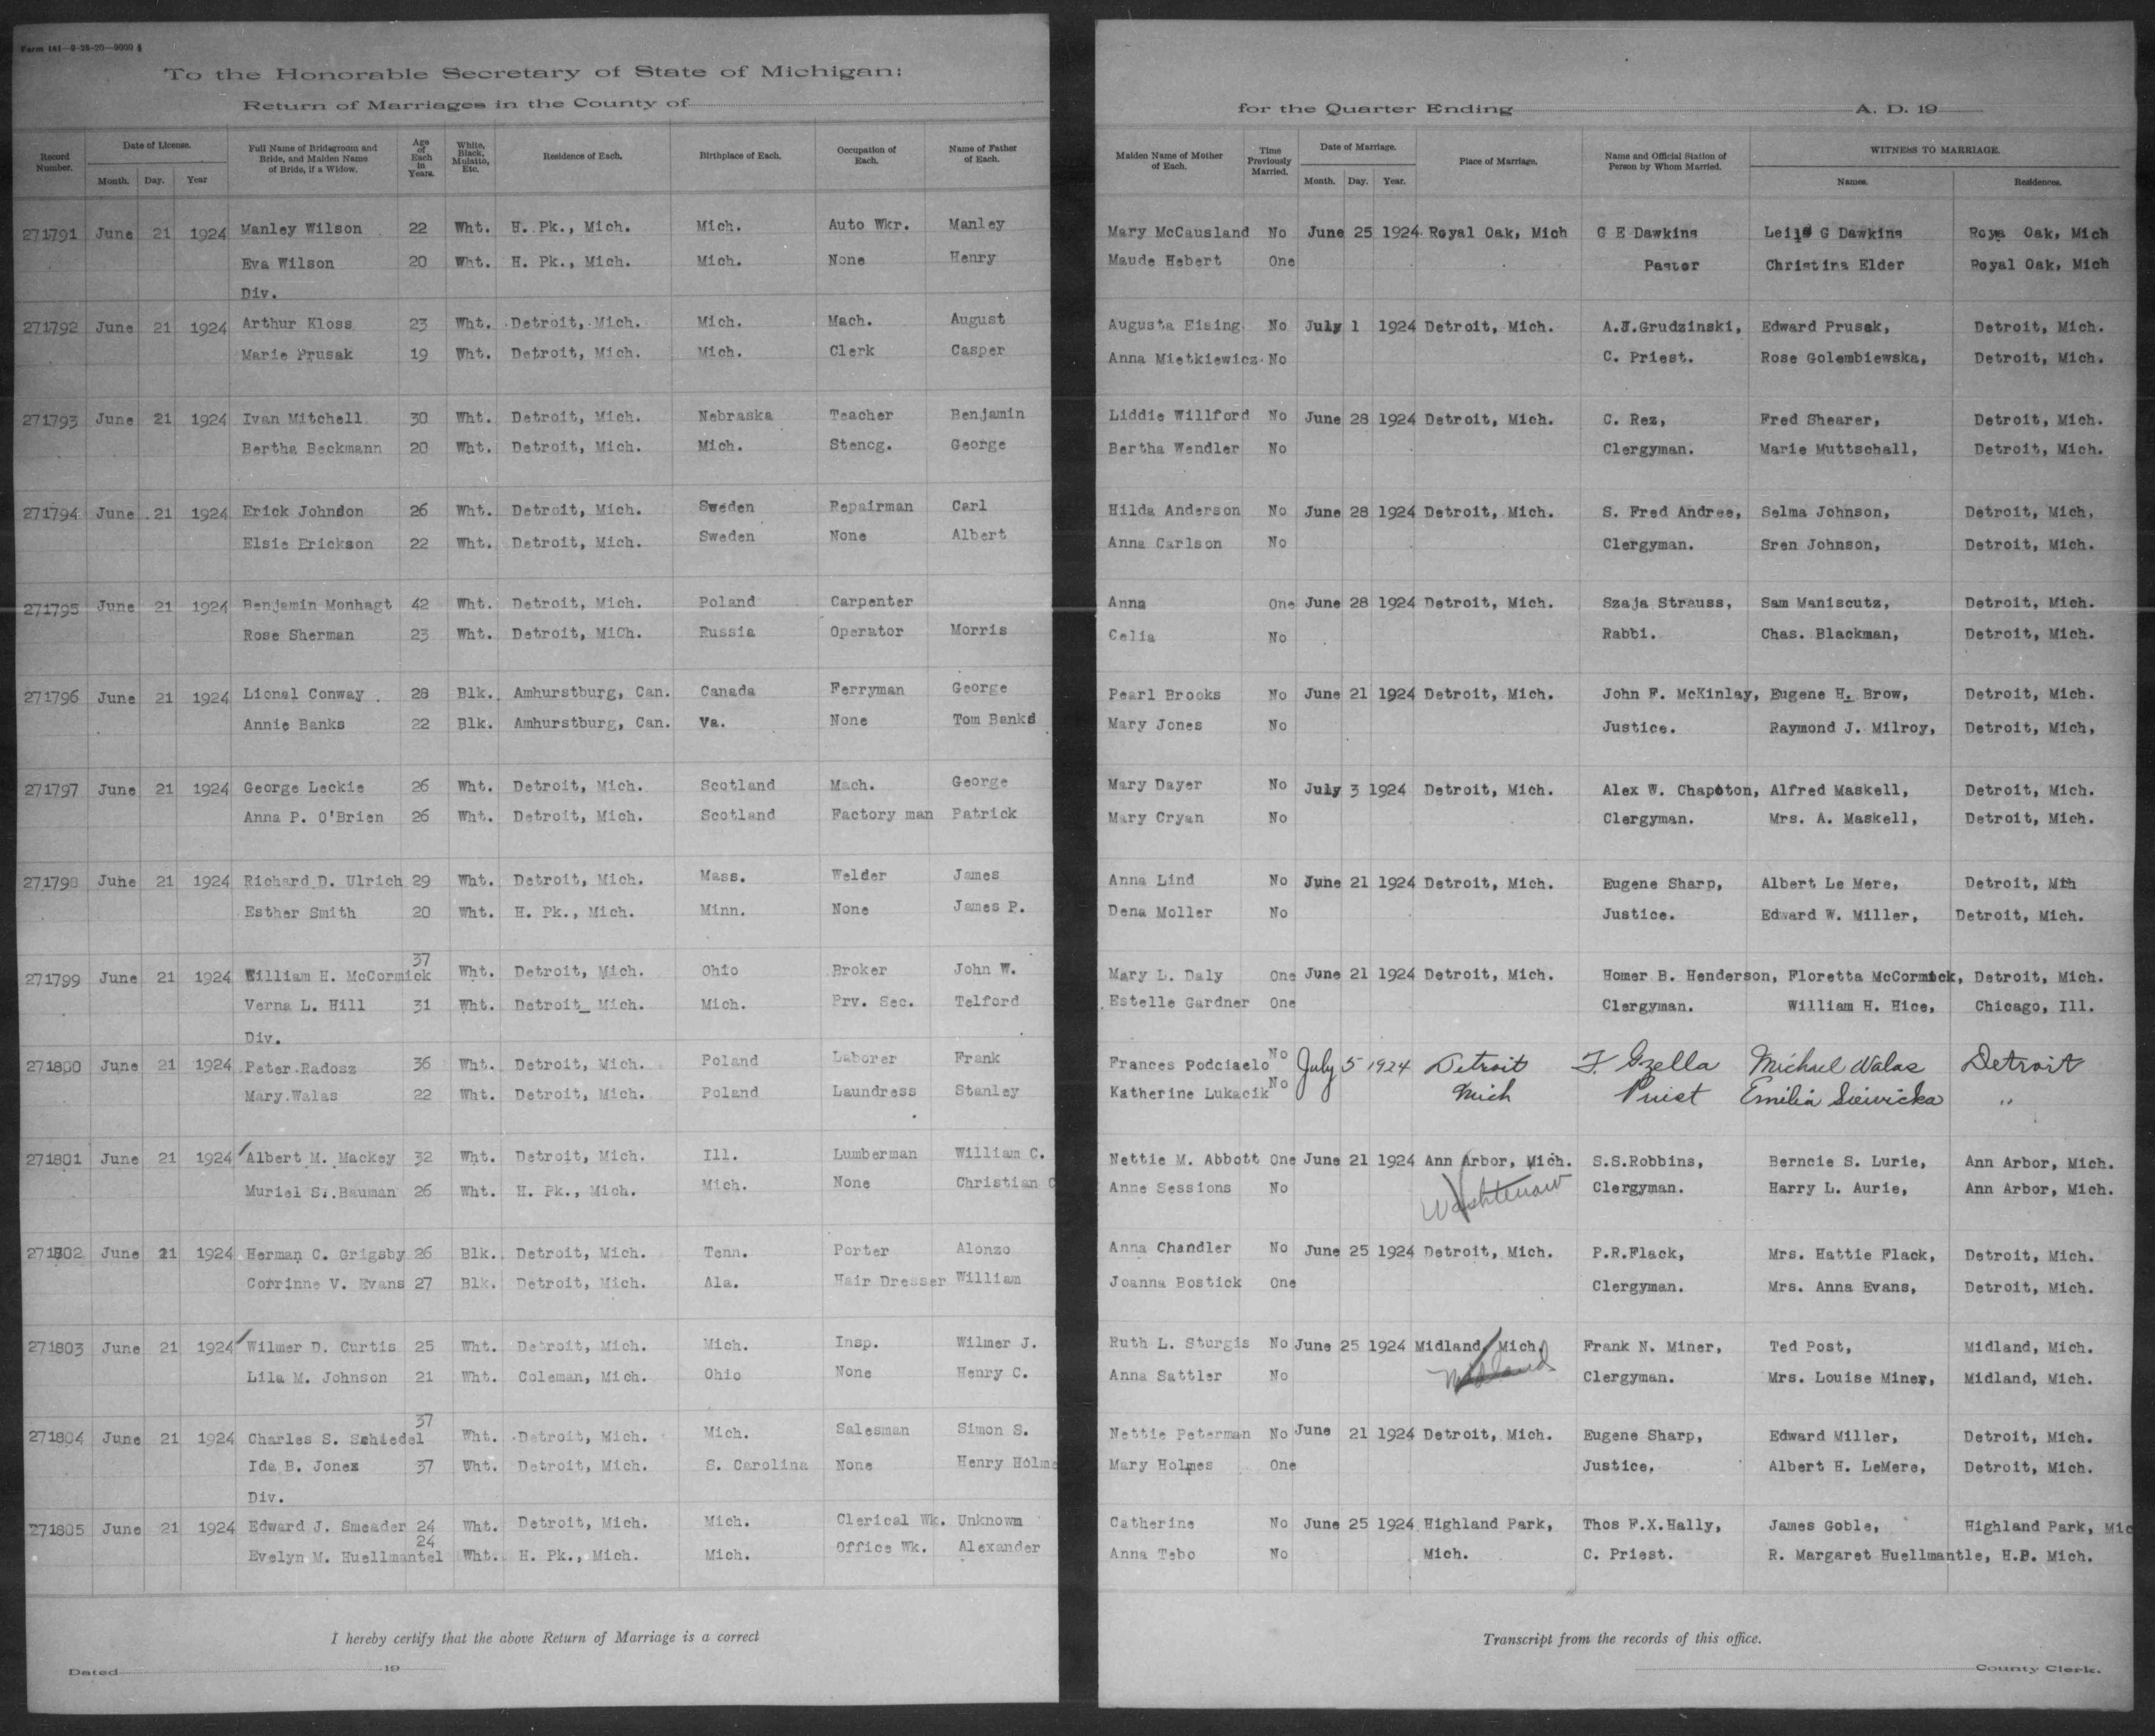 Form 161—9-28-20—9000
To the Honorable Secretary of State of Michigan:
Return of Marriages in the County of
for the Quarter Ending A. D. 19
Record Number. Date of License. Month. Day. Year Full Name of Bridegroom and Bride, and Maiden Name of Bride, if a Widow. Age of Each in Years. White, Black, Mulatto, Etc. Residence of Each. Birthplace of Each. Occupation of Each. Name of Father of Each.
Maiden Name of Mother of Each. Time Previously Married. Date of Marriage. Month. Day. Year. Place of Marriage. Name and Official Station of Person by Whom Married. WITNESS TO MARRIAGE. Names. Residences.
271791 June 21 1924 Manley Wilson 22 Wht. H. Pk., Mich. Mich. Auto Wkr. Manley Mary McCausland No June 25 1924 Royal Oak, Mich G E Dawkins G Dawkins Oak, Mich
Eva Wilson 20 Wht. H. Pk., Mich. Mich. None Henry Maude Hebert One Pastor Christina Elder Royal Oak, Mich
Div.
271792 June 21 1924 Arthur Kloss 23 Wht. Detroit, Mich. Mich. Mach. August Augusta Eising No July 1 1924 Detroit, Mich. A.J.Grudzinski, Edward Prusak, Detroit, Mich.
Marie Prusak 19 Wht. Detroit, Mich. Mich. Clerk Casper Anna Mietkiewicz No C. Priest. Rose Golembiewska, Detroit, Mich.
271793 June 21 1924 Ivan Mitchell 30 Wht. Detroit, Mich. Nebraska Teacher Benjamin Liddie Willford No June 28 1924 Detroit, Mich. C. Rez, Fred Shearer, Detroit, Mich.
Bertha Beckmann 20 Wht. Detroit, Mich. Mich. Stencg. George Bertha Wendler No Clergyman. Marie Muttschall, Detroit, Mich.
271794 June 21 1924 Erick Johndon 26 Wht. Detroit, Mich. Sweden Repairman Carl Hilda Anderson No June 28 1924 Detroit, Mich. S. Fred Andree, Selma Johnson, Detroit, Mich,
Elsie Erickson 22 Wht. Detroit, Mich. Sweden None Albert Anna Carlson No Clergyman. Sren Johnson, Detroit, Mich.
271795 June 21 1924 Benjamin Monhagt 42 Wht. Detroit, Mich. Poland Carpenter Anna One June 28 1924 Detroit, Mich. Szaja Strauss, Sam Maniscutz, Detroit, Mich.
Rose Sherman 23 Wht. Detroit, MiCh. Russia Operator Morris Celia No Rabbi. Chas. Blackman, Detroit, Mich.
271796 June 21 1924 Lional Conway 28 Blk. Amhurstburg, Can. Canada Ferryman George Pearl Brooks No June 21 1924 Detroit, Mich. John F. McKinlay, Eugene H. Brow, Detroit, Mich.
Annie Banks 22 Blk. Amhurstburg, Can. Va. None Tom Banks Mary Jones No Justice. Raymond J. Milroy, Detroit, Mich,
271797 June 21 1924 George Leckie 26 Wht. Detroit, Mich. Scotland Mach. George Mary Dayer No July 3 1924 Detroit, Mich. Alex W. Chapoton, Alfred Maskell, Detroit, Mich.
Anna P. O'Brien 26 Wht. Detroit, Mich. Scotland Factory man Patrick Mary Cryan No Clergyman. Mrs. A. Maskell, Detroit, Mich.
271798 June 21 1924 Richard D. Ulrich 29 Wht. Detroit, Mich. Mass. Welder James Anna Lind No June 21 1924 Detroit, Mich. Eugene Sharp, Albert Le Mere, Detroit, Mth
Esther Smith 20 Wht. H. Pk., Mich. Minn. None James P. Dena Moller No Justice. Edward W. Miller, Detroit, Mich.
271799 June 21 1924 William H. McCormick 37 Wht. Detroit, Mich. Ohio Broker John W. Mary L. Daly One June 21 1924 Detroit, Mich. Homer B. Henderson, Floretta McCormick, Detroit, Mich.
Verna L. Hill 31 Wht. Detroit_ Mich. Mich. Prv. Sec. Telford Estelle Gardner One Clergyman. William H. Hice, Chicago, Ill.
Div.
271800 June 21 1924 Peter Radosz 36 Wht. Detroit, Mich. Poland Laborer Frank Frances Podciaelo No July 5 1924 Detroit F. Gzella Michael Walas Detroit
Mary Walas 22 Wht. Detroit, Mich. Poland Laundress Stanley Katherine Lukacik No Mich Priest Emilia "
271801 June 21 1924 Albert M. Mackey 32 Wht. Detroit, Mich. Ill. Lumberman William C. Nettie M. Abbott One June 21 1924 Ann Arbor, Mich. S.S.Robbins, Berncie S. Lurie, Ann Arbor, Mich.
Muriel S. Bauman 26 Wht. H. Pk., Mich. Mich. None Christian C Anne Sessions No Washtenaw Clergyman. Harry L. Aurie, Ann Arbor, Mich.
271802 June 21 1924 Herman C. Grigsby 26 Blk. Detroit, Mich. Tenn. Porter Alonzo Anna Chandler No June 25 1924 Detroit, Mich. P.R.Flack, Mrs. Hattie Flack, Detroit, Mich.
Corrinne V. Evans 27 Blk. Detroit, Mich. Ala. Hair Dresser William Joanna Bostick One Clergyman. Mrs. Anna Evans, Detroit, Mich.
271803 June 21 1924 Wilmer D. Curtis 25 Wht. Detroit, Mich. Mich. Insp. Wilmer J. Ruth L. Sturgis No June 25 1924 Midland, Mich. Frank N. Miner, Ted Post, Midland, Mich.
Lila M. Johnson 21 Wht. Coleman, Mich. Ohio None Henry C. Anna Sattler No Midland Clergyman. Mrs. Louise Miner, Midland, Mich.
271804 June 21 1924 Charles S. Schiedel 37 Wht. Detroit, Mich. Mich. Salesman Simon S. Nettie Peterman No June 21 1924 Detroit, Mich. Eugene Sharp, Edward Miller, Detroit, Mich.
Ida B. Jones 37 Wht. Detroit, Mich. S. Carolina None Henry Holme Mary Holmes One Justice, Albert H. LeMere, Detroit, Mich.
Div.
271805 June 21 1924 Edward J. Smeader 24 Wht. Detroit, Mich. Mich. Clerical Wk. Unknown Catherine No June 25 1924 Highland Park, Thos F.X.Hally, James Goble, Highland Park, Mic
Evelyn M. Huellmantel 24 Wht. H. Pk., Mich. Mich. Office Wk. Alexander Anna Tebo No Mich. C. Priest. R. Margaret Huellmantle, H.P. Mich.
I hereby certify that the above Return of Marriage is a correct
Transcript from the records of this office.
Dated 19
County Clerk.